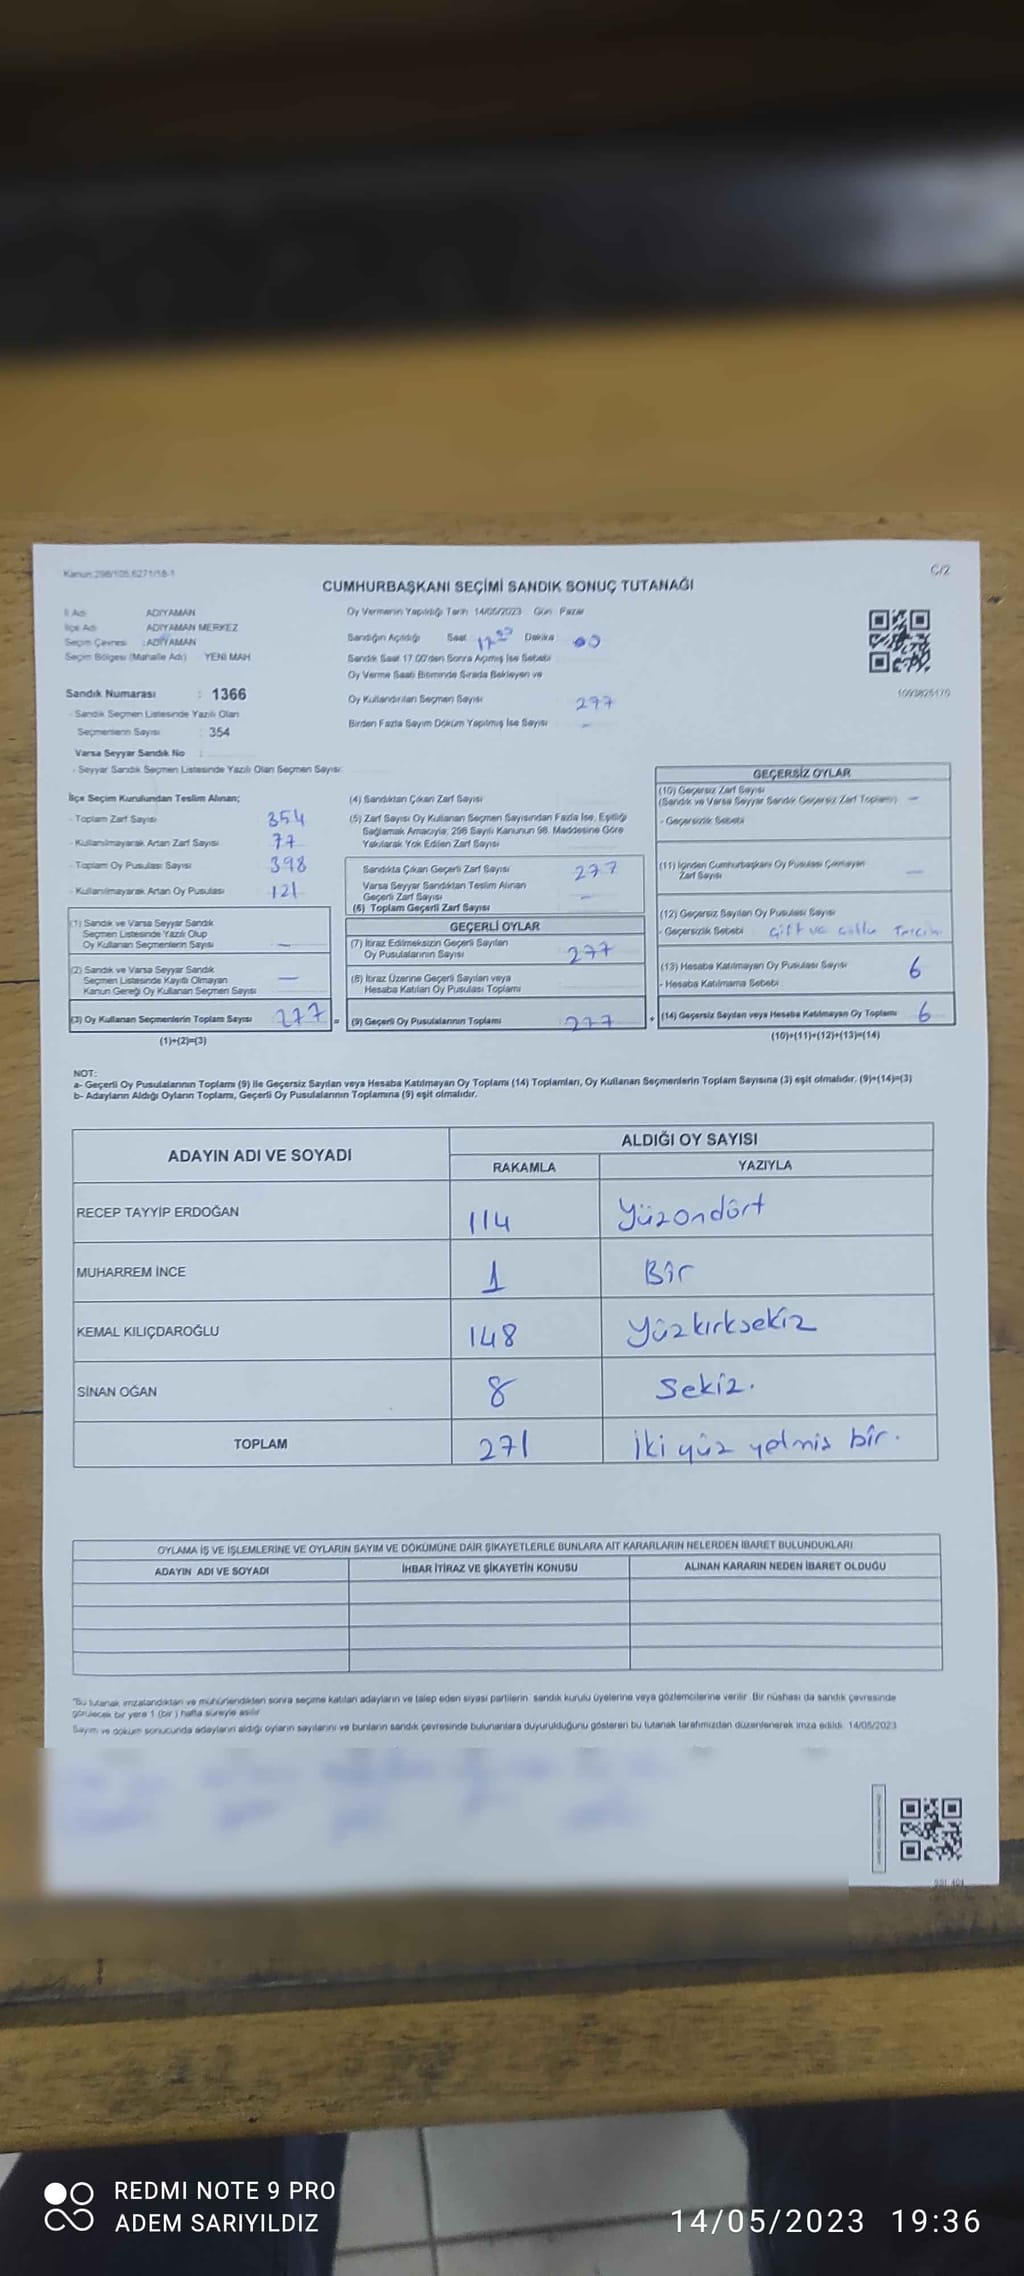 Kanun:298/105,6271/18-1
C/2
CUMHURBAŞKANI SEÇİMİ SANDIK SONUÇ TUTANAĞI
İl Adı ADIYAMAN
İlçe Adı ADIYAMAN MERKEZ
Seçim Çevresi : ADIYAMAN
Seçim Bölgesi (Mahalle Adı) YENİ MAH
Sandık Numarası : 1366
- Sandık Seçmen Listesinde Yazılı Olan
Seçmenlerin Sayısı : 354
Varsa Seyyar Sandık No :
- Seyyar Sandık Seçmen Listesinde Yazılı Olan Seçmen Sayısı:
Oy Vermenin Yapıldığı Tarih 14/05/2023 Gün : Pazar
Sandığın Açıldığı Saat 17 00 Dakika : 00
Sandık Saat 17.00'den Sonra Açılmış İse Sebebi
Oy Verme Saati Bitiminde Sırada Bekleyen ve
Oy Kullandırılan Seçmen Sayısı 277
Birden Fazla Sayım Döküm Yapılmış İse Sayısı –
1093825170
İlçe Seçim Kurulundan Teslim Alınan;
- Toplam Zarf Sayısı 354
- Kullanılmayarak Artan Zarf Sayısı 77
- Toplam Oy Pusulası Sayısı 398
- Kullanılmayarak Artan Oy Pusulası 121
(1) Sandık ve Varsa Seyyar Sandık
Seçmen Listesinde Yazılı Olup
Oy Kullanan Seçmenlerin Sayısı –
(2) Sandık ve Varsa Seyyar Sandık
Seçmen Listesinde Kayıtlı Olmayan
Kanun Gereği Oy Kullanan Seçmen Sayısı –
(3) Oy Kullanan Seçmenlerin Toplam Sayısı 277 =
(1)+(2)=(3)
(4) Sandıktan Çıkan Zarf Sayısı
(5) Zarf Sayısı Oy Kullanan Seçmen Sayısından Fazla İse, Eşitliği
Sağlamak Amacıyla; 298 Sayılı Kanunun 98. Maddesine Göre
Yakılarak Yok Edilen Zarf Sayısı
Sandıkta Çıkan Geçerli Zarf Sayısı 277
Varsa Seyyar Sandıktan Teslim Alınan
Geçerli Zarf Sayısı –
(6) Toplam Geçerli Zarf Sayısı
GEÇERLİ OYLAR
(7) İtiraz Edilmeksizin Geçerli Sayılan
Oy Pusulalarının Sayısı 277
(8) İtiraz Üzerine Geçerli Sayılan veya
Hesaba Katılan Oy Pusulası Toplamı
(9) Geçerli Oy Pusulalarının Toplamı 277 +
GEÇERSİZ OYLAR
(10) Geçersiz Zarf Sayısı
(Sandık ve Varsa Seyyar Sandık Geçersiz Zarf Toplamı) –
- Geçersizlik Sebebi
(11) İçinden Cumhurbaşkanı Oy Pusulası Çıkmayan
Zarf Sayısı –
(12) Geçersiz Sayılan Oy Pusulası Sayısı
- Geçersizlik Sebebi Çift ve
(13) Hesaba Katılmayan Oy Pusulası Sayısı 6
- Hesaba Katılmama Sebebi
(14) Geçersiz Sayılan veya Hesaba Katılmayan Oy Toplamı 6
(10)+(11)+(12)+(13)=(14)
NOT:
a- Geçerli Oy Pusulalarının Toplamı (9) ile Geçersiz Sayılan veya Hesaba Katılmayan Oy Toplamı (14) Toplamları, Oy Kullanan Seçmenlerin Toplam Sayısına (3) eşit olmalıdır. (9)+(14)=(3)
b- Adayların Aldığı Oyların Toplamı, Geçerli Oy Pusulalarının Toplamına (9) eşit olmalıdır.
ADAYIN ADI VE SOYADI
ALDIĞI OY SAYISI
RAKAMLA YAZIYLA
RECEP TAYYİP ERDOĞAN 114 Yüzondört
MUHARREM İNCE 1 Bir
KEMAL KILIÇDAROĞLU 148 Yüzkırksekiz
SİNAN OĞAN 8 Sekiz.
TOPLAM 271 İki yüz yetmiş bir.
OYLAMA İŞ VE İŞLEMLERİNE VE OYLARIN SAYIM VE DÖKÜMÜNE DAİR ŞİKAYETLERLE BUNLARA AİT KARARLARIN NELERDEN İBARET BULUNDUKLARI
ADAYIN ADI VE SOYADI İHBAR İTİRAZ VE ŞİKAYETİN KONUSU ALINAN KARARIN NEDEN İBARET OLDUĞU
*Bu tutanak imzalandıktan ve mühürlendikten sonra seçime katılan adayların ve talep eden siyasi partilerin sandık kurulu üyelerine veya gözlemcilerine verilir. Bir nüshası da sandık çevresinde
görülecek bir yere 1 (bir) hafta süreyle asılır.
Sayım ve döküm sonucunda adayların aldığı oyların sayılarını ve bunların sandık çevresinde bulunanlara duyurulduğunu gösteren bu tutanak tarafımızdan düzenlenerek imza edildi. 14/05/2023
REDMI NOTE 9 PRO
ADEM SARIYILDIZ
14/05/2023 19:36